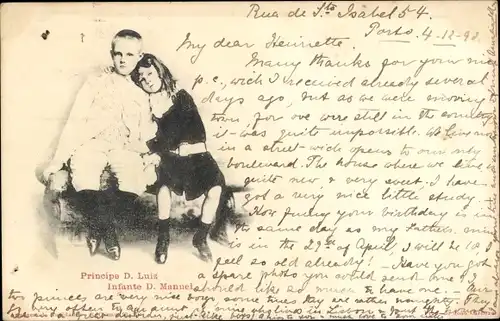 Rua de Sta Isabel 54.
Porto 4-12-98
My dear Henriette,
Many thanks for your nice
p.c., wich I received already several
days ago, but as we were moving
town, for ove were still in the country,
it was quite impossible. We live now
in a street wide opens to our only
boulevard. The house where we live is
quite new, & very sweet. I have
got a very nice little study.
How funny your birthday is in
the same day as my Fathers. mine
is in the 29th of April, I will be 16
feel so old already! - Have you got
a spare photo you could send one? I
should like so much to have one.
Principe D. Luiz
Infante D. Manuel
two princes are very nice boys some times they are rather noughty. They